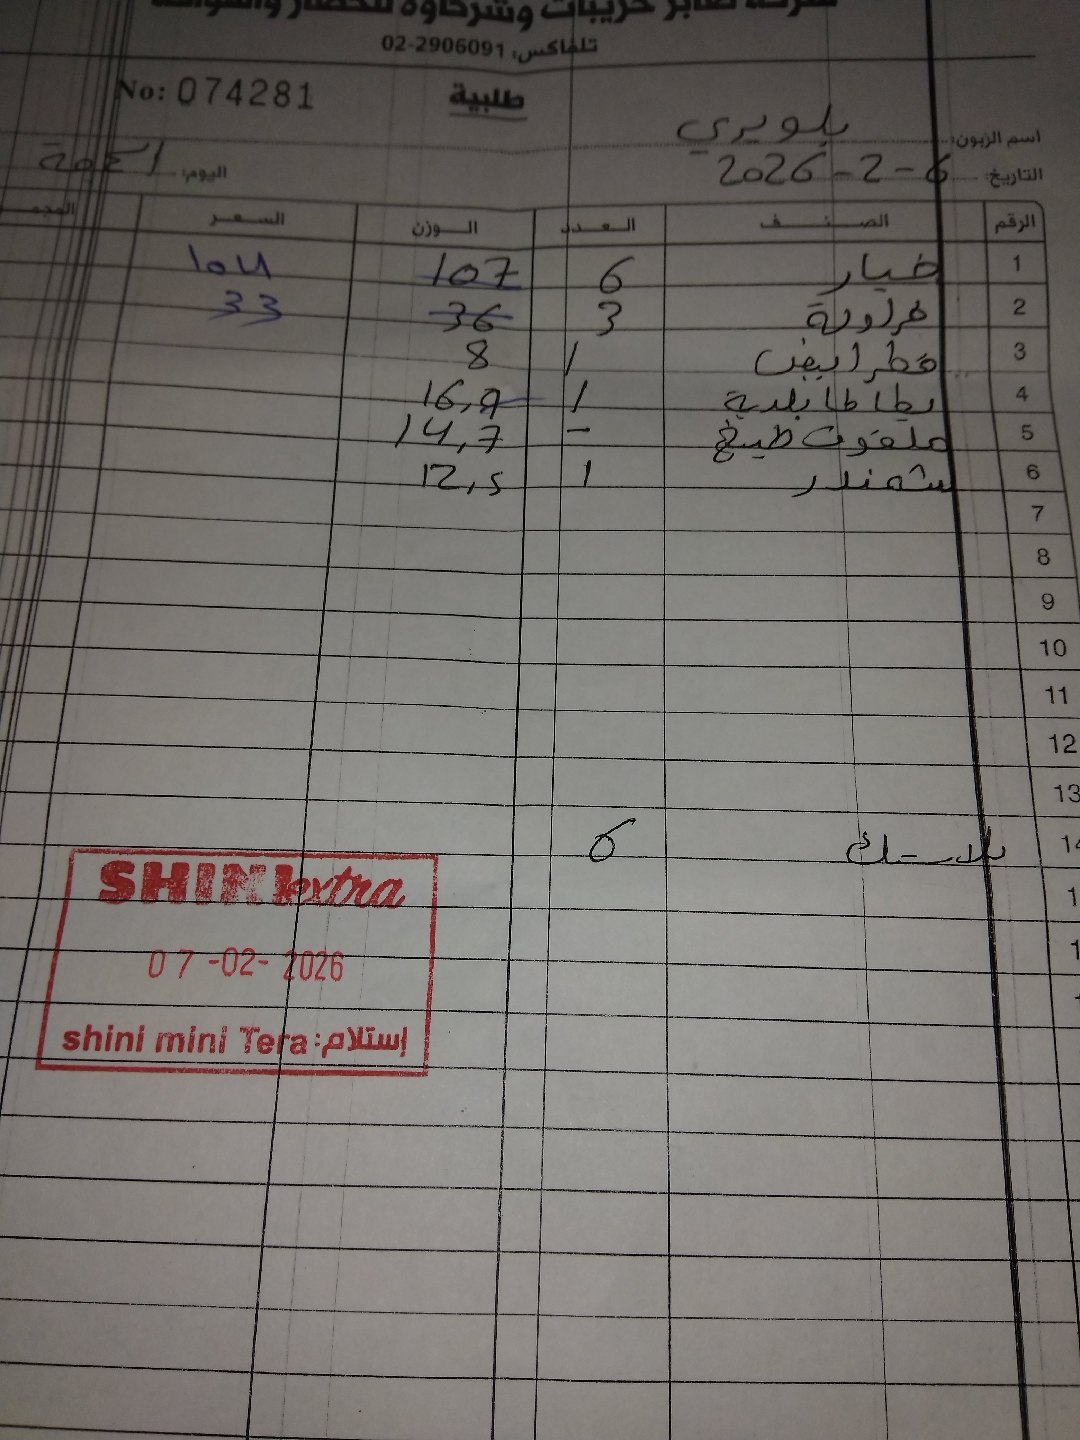 شركة صابر خريبات وشركاؤه للخضار والفواكه
تلفاكس: 02-2906091
No: 074281
طلبية
اسم الزبون: بلويري
التاريخ: 6-2-2026 اليوم: الجمعة
الرقم الصنف العدد الوزن السعر
1 خيار 6 107 104
2 فراولة 3 36 33
3 فطر ابيض 1 8
4 بطاطا بلدية 1 16,9
5 ملفوف طبيخ - 14,7
6 شمندر 1 12,5
7
8
9
10
11
12
13
14 بلاستك 6
SHINI extra
07-02-2026
shini mini Tera :إستلام